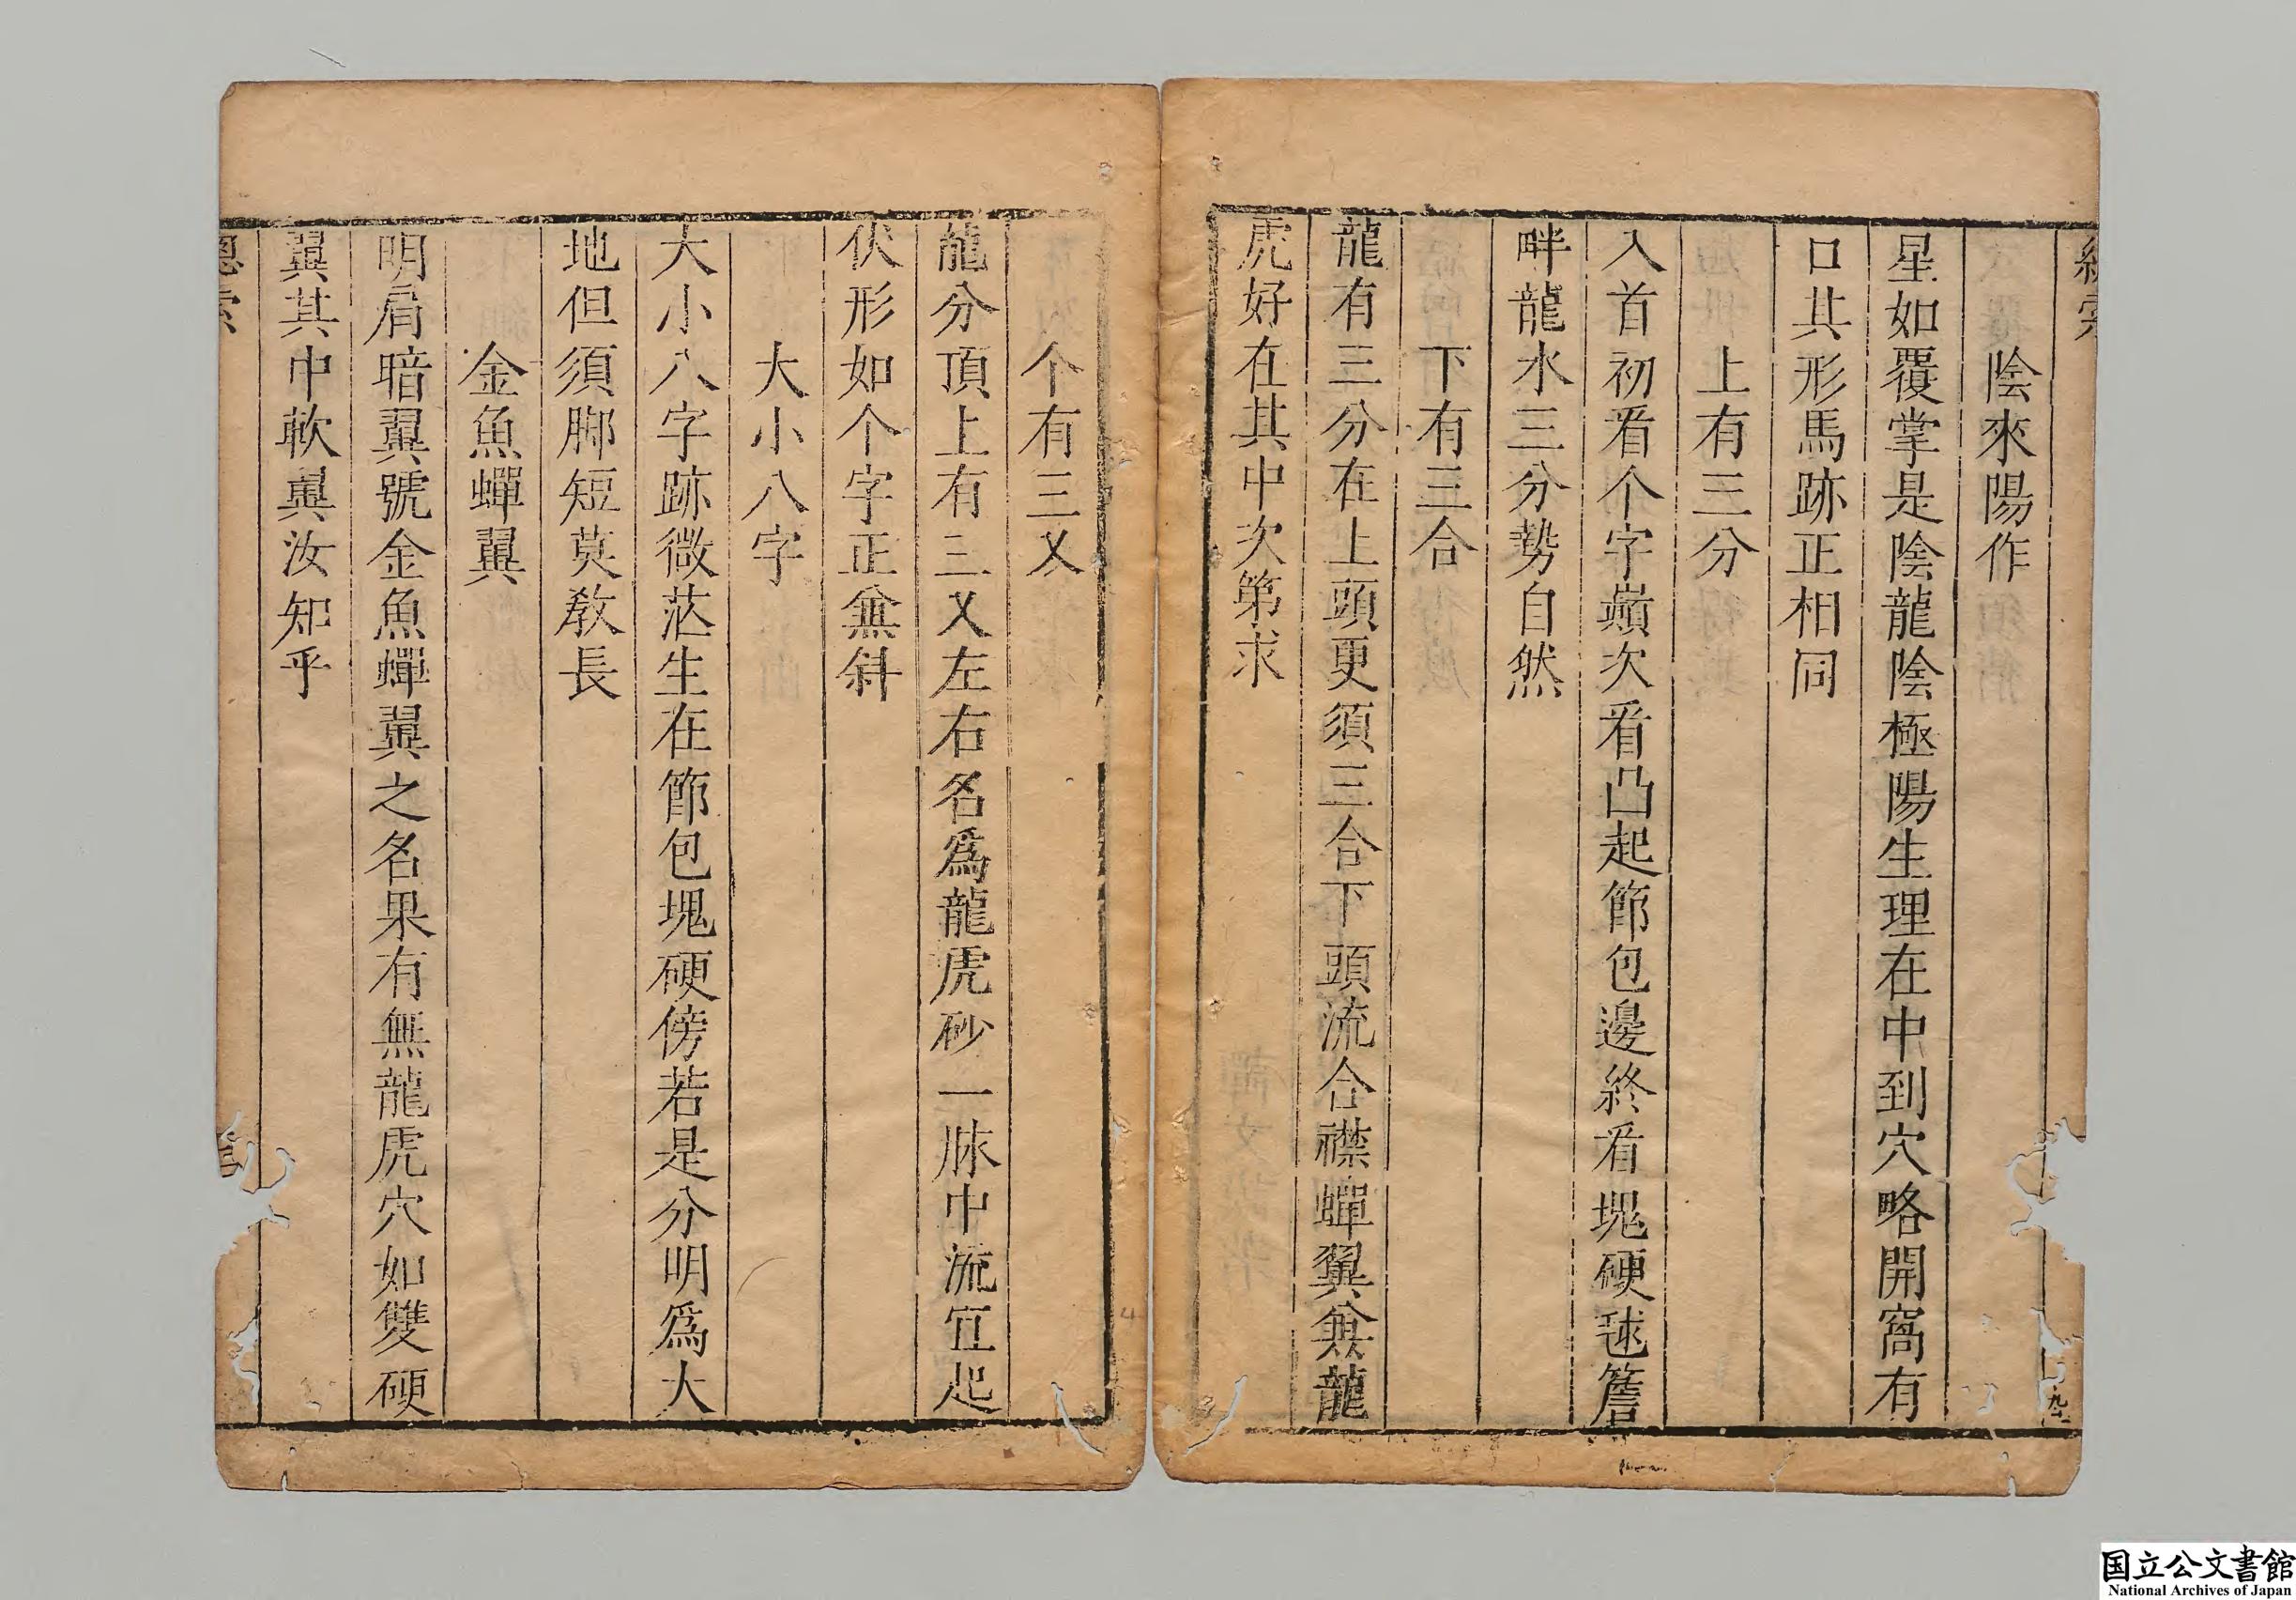 陰來陽作
星如覆掌是陰龍陰極陽生理在中到穴略開窩有
口其形馬跡正相同
上有三分
入首初看个字巔次看凸起節包邊終看塊硬毬簷
畔龍水三分勢自然
下有三合
龍有三分在上頭更須三合下頭流合襟蟬翼兼龍
虎好在其中次第求
个有三叉
龍分頂上有三叉左右名為龍虎砂一脉中流宜起
伏形如个字正無斜
大小八字
大小八字跡微茫生在節包塊硬傍若是分明為大
地但須脚短莫教長
金魚蟬翼
明肩暗翼號金魚蟬翼之名果有無龍虎穴如雙硬
翼其中軟翼汝知乎
総索
国立公文書館
National Archives of Japan